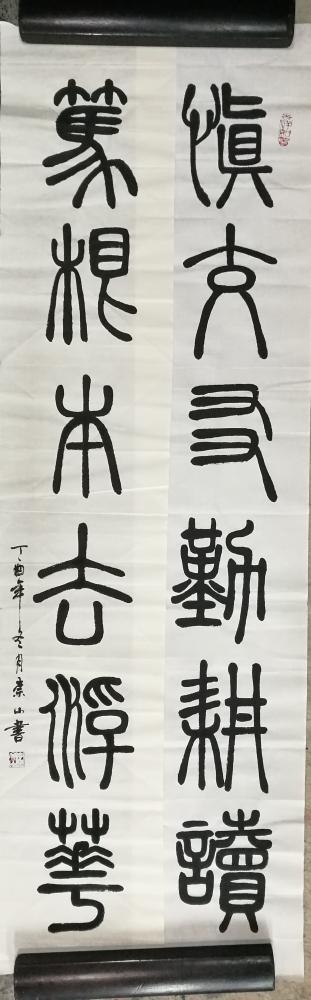 慎交友勤耕讀
篤根本去浮華
丁酉年冬月崇山書